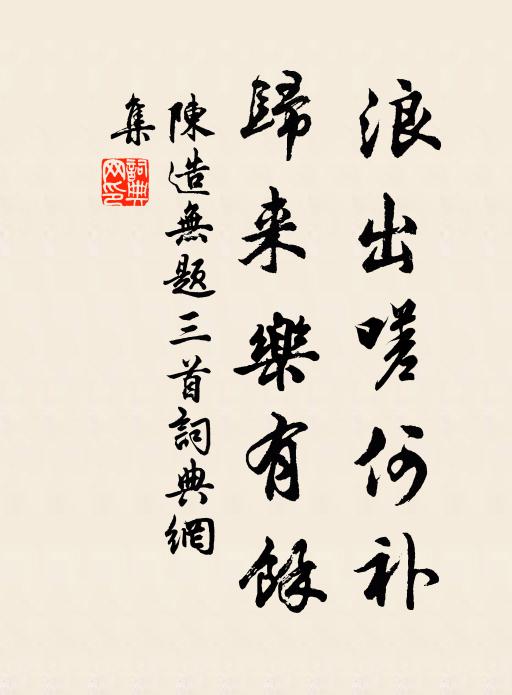 浪出嗟何补
歸来樂有餘
陳造無题三首詞典網
集
詞典网印